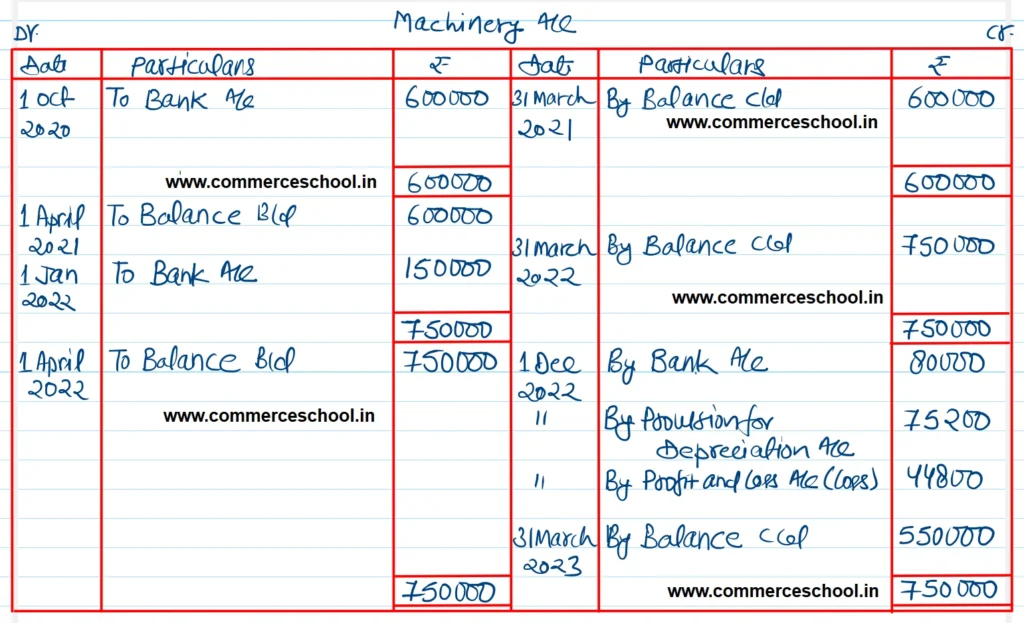 Machinery A/c
Dr. Cr.
Date Particulars ₹ Date Particulars ₹
1 Oct To Bank A/c 600000 31 March By Balance c/d 600000
2020 www.commerceschool.in
2021
www.commerceschool.in 600000 600000
1 April To Balance B/d 600000
2021 31 March By Balance C/d 750000
1 Jan To Bank A/c 150000 2022
2022 www.commerceschool.in
750000 750000
1 April To Balance B/d 750000 1 Dec By Bank A/c 80000
2022 2022
www.commerceschool.in " By Provision for 75200
Depreciation A/c
" By Profit and Loss A/c (Loss) 44800
31 March By Balance C/d 550000
2023
750000 www.commerceschool.in 750000